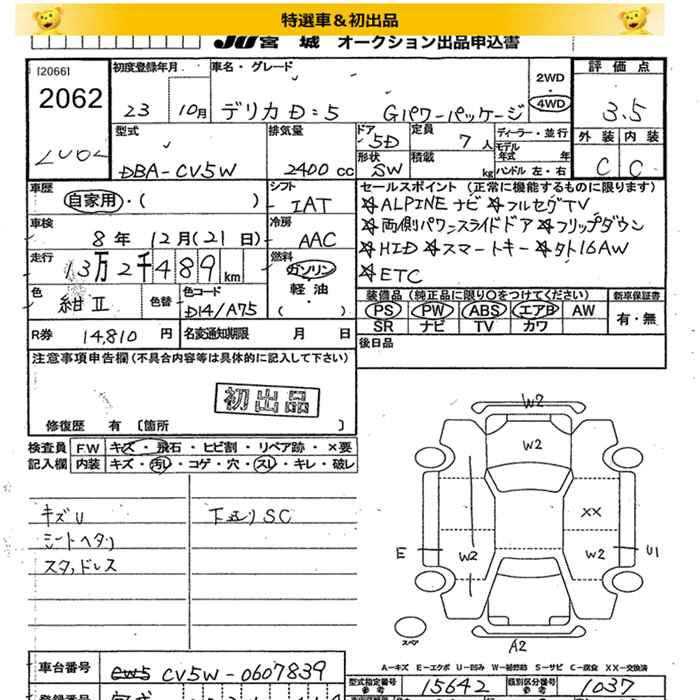 特選車＆初出品
JU宮城 オークション出品申込書
[2066]
2062
初度登録年月 23 10月
車名・グレード デリカD:5 Gパワーパッケージ
2WD
4WD
評価点
3.5
外装 内装
C C
型式 DBA-CV5W
排気量 2400 cc
ドア 5D
定員 7人
形状 SW
積載 kg
ディーラー・並行
モデル年式 年
ハンドル 左・右
車歴 自家用・( )
シフト IAT
車検 8年12月(21日)
冷房 AAC
走行 13万2千489km
燃料 ガソリン
軽油
( )
色 紺II
色替
色コード D14/A75
R券 14,810円
名変通知期限 月 日
セールスポイント（正常に機能するものに限ります）
☆ALPINEナビ☆フルセグTV
☆両側パワースライドドア☆フリップダウン
☆HID☆スマートキー☆タト16AW
☆ETC
装備品（純正品に限り○をつけてください）
PS PW ABS エアB AW
SR ナビ TV カワ
新車保証書
有・無
後日品
注意事項申告欄（不具合内容等は具体的に記入して下さい）
初出品
修復歴 有 〔箇所 〕
検査員記入欄
FW キズ・飛石・ヒビ割・リペア跡・×要
内装 キズ・汚レ・コゲ・穴・スレ・キレ・破レ
キズU
シートヘタリ
スタッドレス
下廻りSC
W2
W2
XX
E
W2
W2
U1
スペア
A2
A-キズ E-エクボ U-凹み W-補修跡 S-サビ C-腐食 XX-交換済
車台番号 CV5W-0607839
型式指定番号 参考 15642
類別区分番号 参考 1037